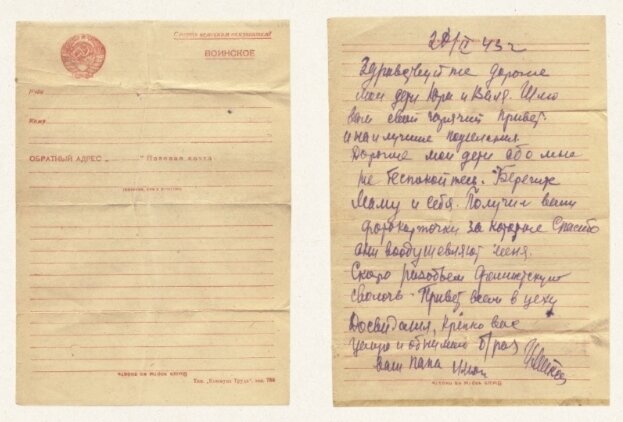 Смерть немецким оккупантам!
ВОИНСКОЕ
Куда
Кому
ОБРАТНЫЙ АДРЕС Полевая почта
Здравствуйте дорогие
мои дети Юра и Валя. Шлю
вам свой горячий привет
и наилучшие пожелания
Дорогие мои дети обо мне
не беспокойтесь. Берегите
Маму и себя. Получил ваши
фотокарточки за которые Спасибо
они воодушевляют меня.
Скоро разобьем фашистскую
сволочь. Привет всем в цеху
Досвидания, Крепко вас
целую и обнимаю раз
ваш папа